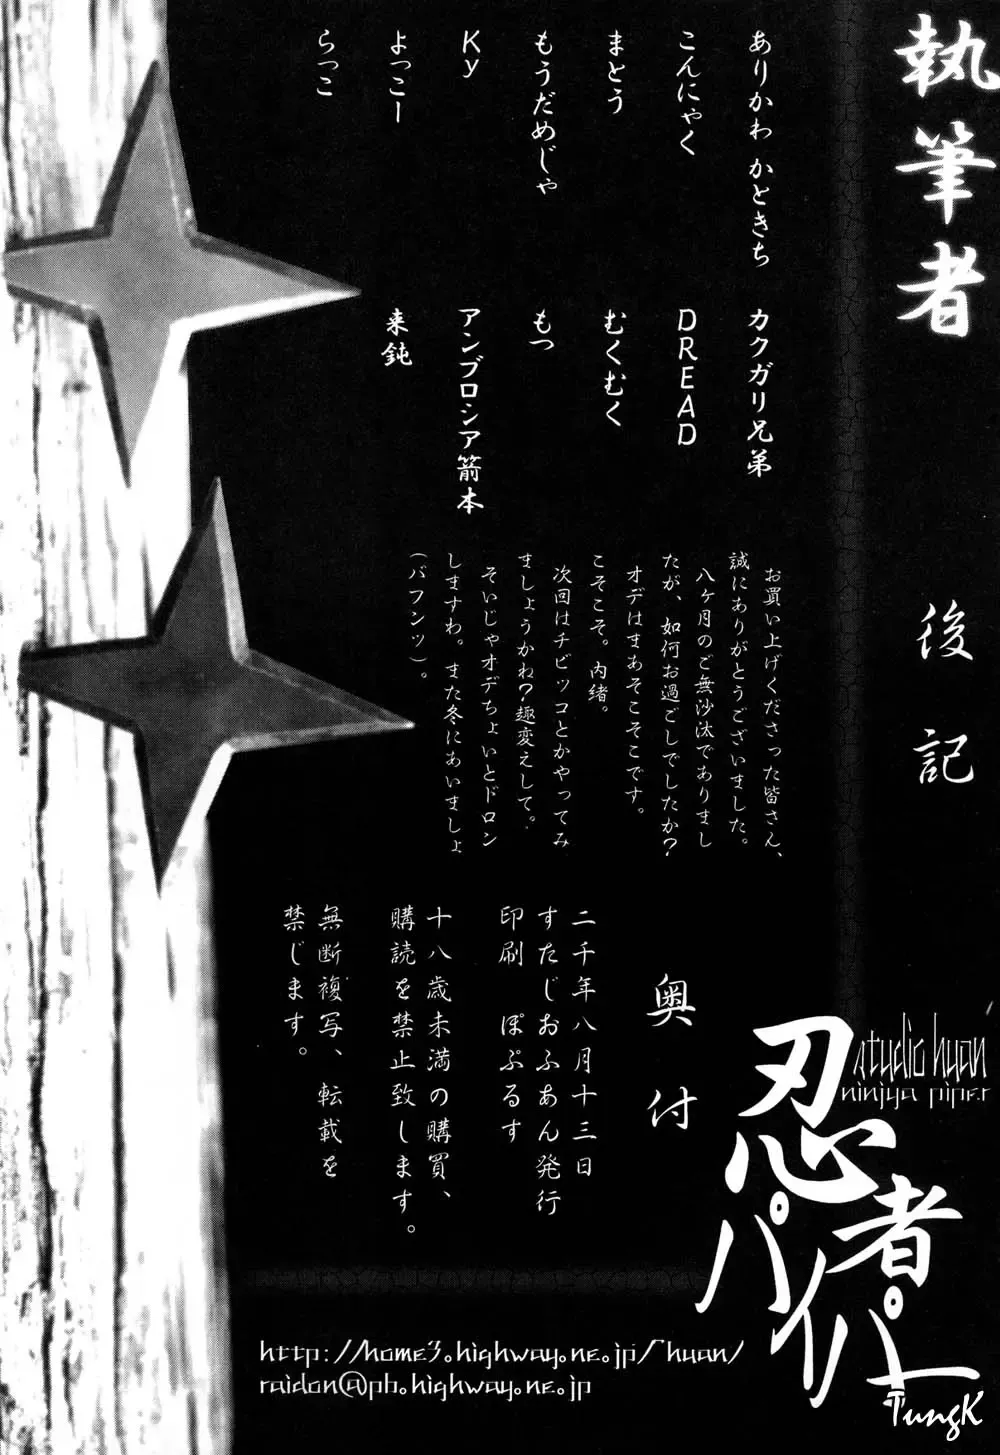 執筆者
ありかわ かときち
こんにゃく
まとう
もうだめじゃ
Ky
よっこー
らっこ
カクガリ兄弟
DREAD
むくむく
もつ
アンブロシア箭本
来鈍
後記
お買い上げくださった皆さん、
誠にありがとうございました。
八ヶ月のご無沙汰でありまし
たが、如何お過ごしでしたか?
オデはまあそこそこです。
こそこそ。内緒。
次回はチビッコとかやってみ
ましょうかね?趣変えして。
そいじゃオデちょいとドロン
しますわ。また冬にあいましょ
(バフンッ)。
奥付
二千年八月十三日
すたじおふあん発行
印刷 ぽぷるす
十八歳未満の購買、
購読を禁止致します。
無断複写、転載を
禁じます。
studio huan
ninjya piper
忍者パイパー
http://home3.highway.ne.jp/~huan/
raidon@pb.highway.ne.jp
TungK